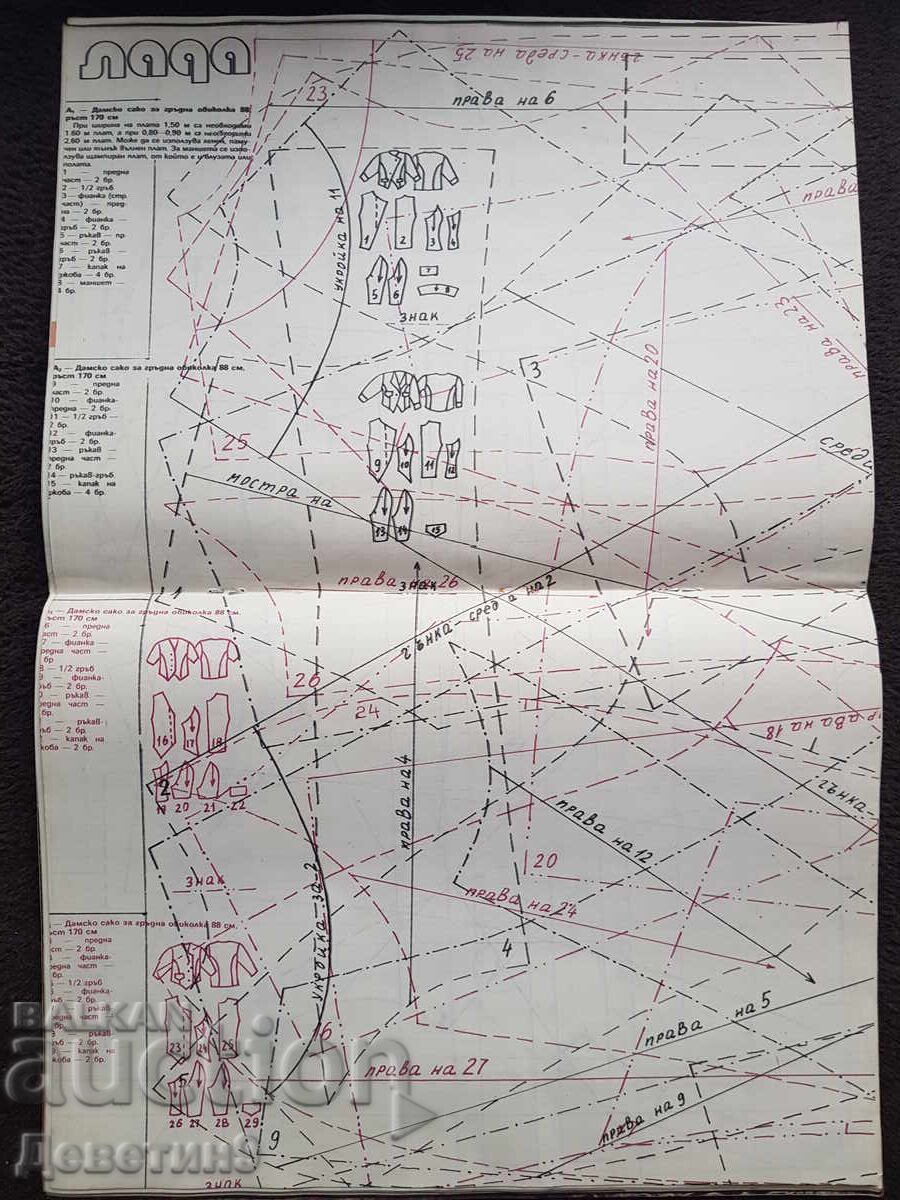 лада
А₁ — Дамско сако за гръдна обиколка 88,
ръст 170 см
При ширина на плата 1,50 м са необходими
1.60 м плат, а при 0,80—0,90 м са необходими
2.60 м плат. Може да се използува ленен, паму-
чен или тънък вълнен плат. За маншета се изпол-
зува щампиран плат, от който е и блузата или
полата.
1 — предна
част — 2 бр.
2 — 1/2 гръб
3 — фианка (стр.
част) — пред-
на — 2 бр.
4 — фианка —
гръб — 2 бр.
5 — ръкав — пр.
част — 2 бр.
6 — ръкав —
гръб — 2 бр.
7 — капак на
джоба — 4 бр.
8 — маншет —
4 бр.
23
гънка-среда на 25
права на 6
укройка на 11
1 2 3 4
5 6 7 8
знак
права на 20
права на 23
3
Дамско сако за гръдна обиколка 88 см,
ръст 170 см
9 — предна
част — 2 бр.
10 — фианка-
предна — 2 бр.
11 — 1/2 гръб —
2 бр.
12 — фианка-
гръб — 2 бр.
13 — ръкав —
предна част —
2 бр.
14 — ръкав-гръб
15 — капак на
джоба — 4 бр.
9 10 11 12
13 14 15
25
мостра на
права на 26
знак
гънка-среда на 2
— Дамско сако за гръдна обиколка 88 см.
ръст 170 см
16 17 18
20 21 22
2
26
24
права на 4
права на 18
гънка
права на 12
20
права на 24
4
знак
укройка-за-2
Дамско сако за гръдна обиколка 88 см.
ръст 170 см
23 24 25
26 27 28 29
5
6
9
права на 5
права на 27
права на 9
знак
BALKAN
auction
Деветин9